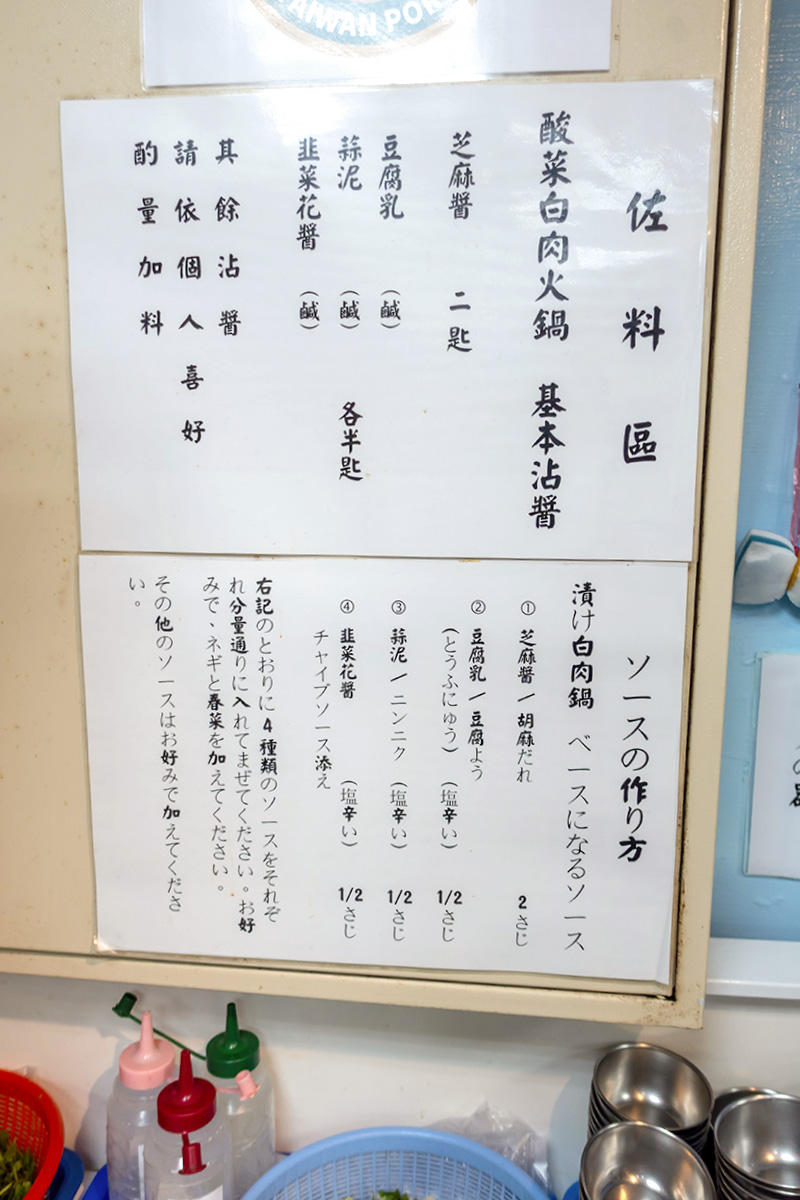 AIWAN POR
佐料區
酸菜白肉火鍋 基本沾醬
芝麻醬 二匙
豆腐乳 (鹹)
蒜泥 (鹹) 各半匙
韭菜花醬 (鹹)
其餘沾醬
請依個人喜好
酌量加料
ソースの作り方
漬け白肉鍋 ベースになるソース
① 芝麻醬/胡麻だれ 2さじ
② 豆腐乳/豆腐よう
(とうふにゅう) (塩辛い) 1/2さじ
③ 蒜泥/ニンニク (塩辛い) 1/2さじ
④ 韭菜花醬 (塩辛い) 1/2さじ
チャイブソース添え
右記のとおりに4種類のソースをそれぞ
れ分量通りに入れてまぜてください。お好
みで、ネギと春菜を加えてください。
その他のソースはお好みで加えてくださ
い。